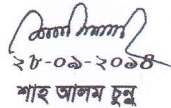 ২৮-০৯-২০১৪
শাহ আলম চুনু